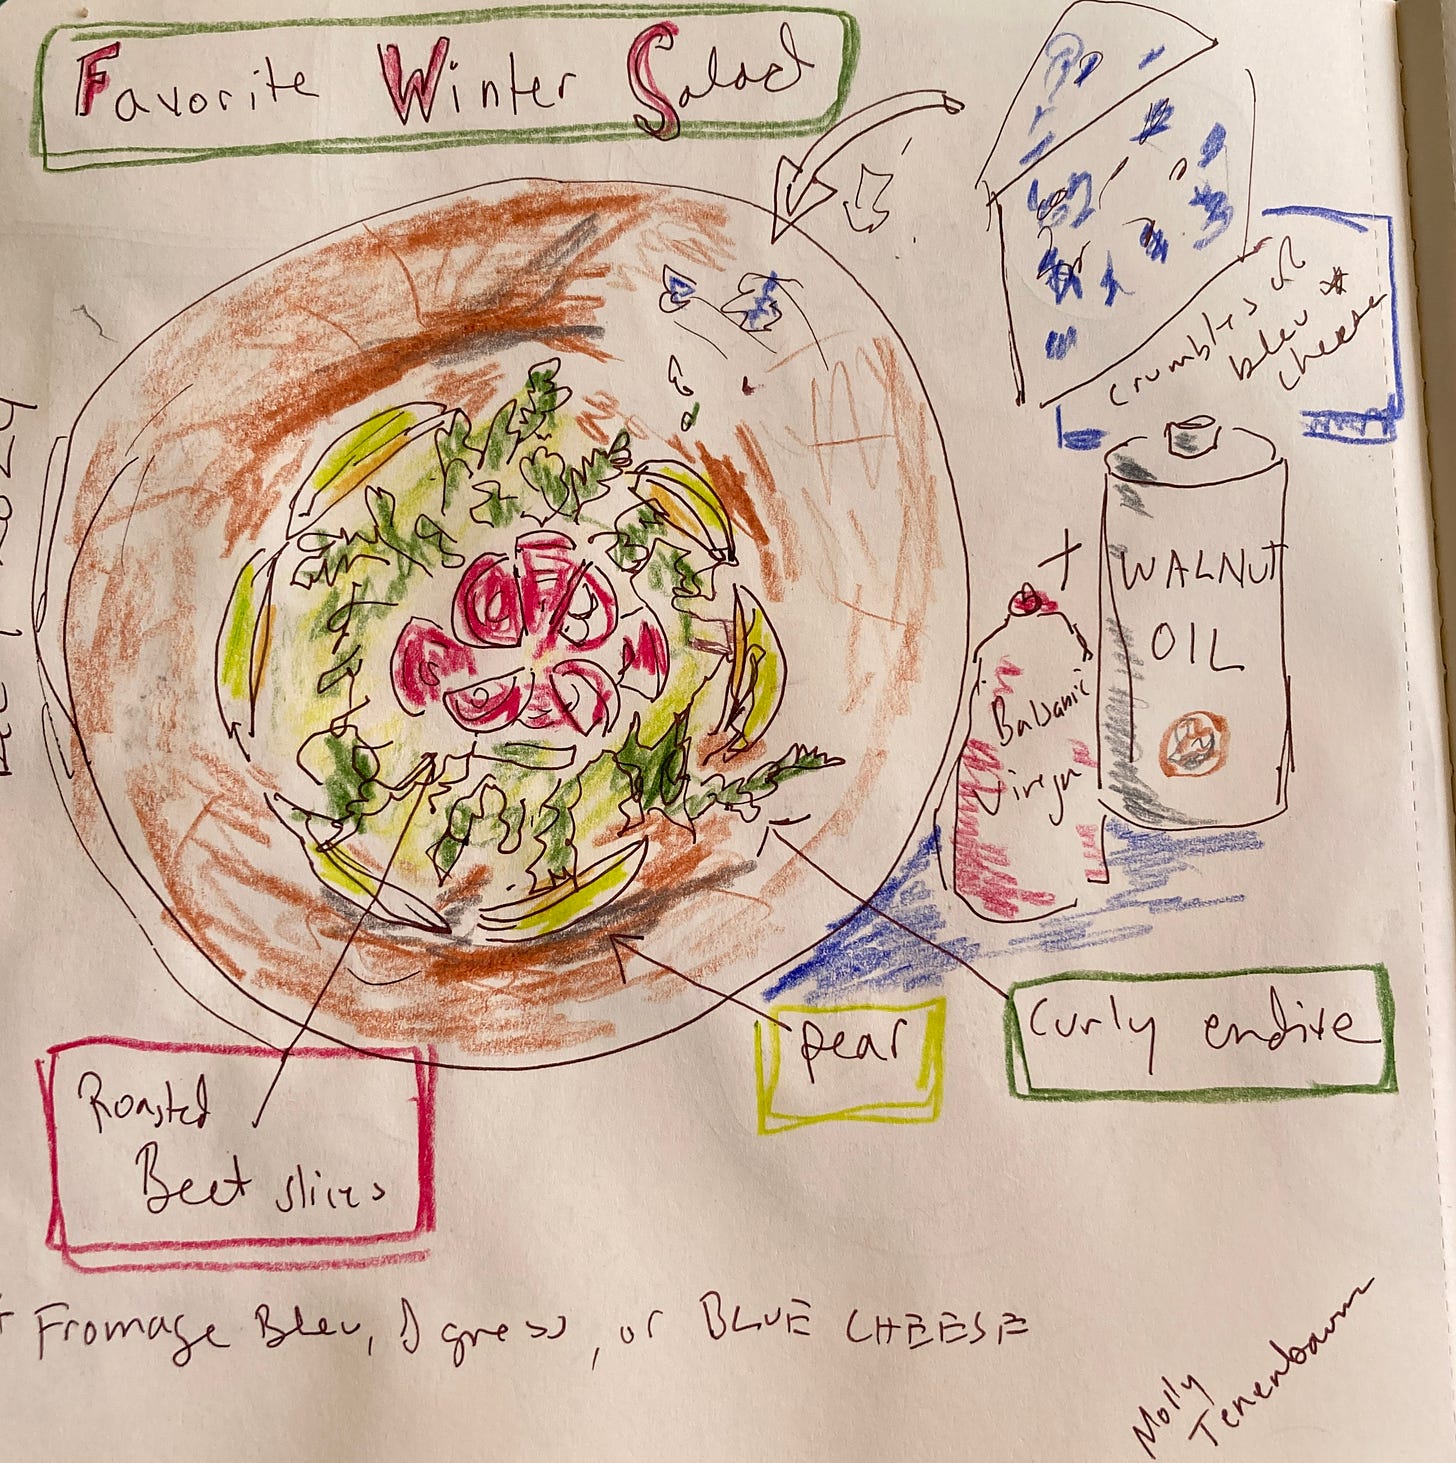 Favorite Winter Salad
crumbles of
bleu *
cheese
WALNUT
OIL
+
Balsamic
Vinegr
pear
curly endive
Roasted
Beet slices
* Fromage Bleu, I guess, or BLUE CHEESE
Molly
Tenenbaum
2024